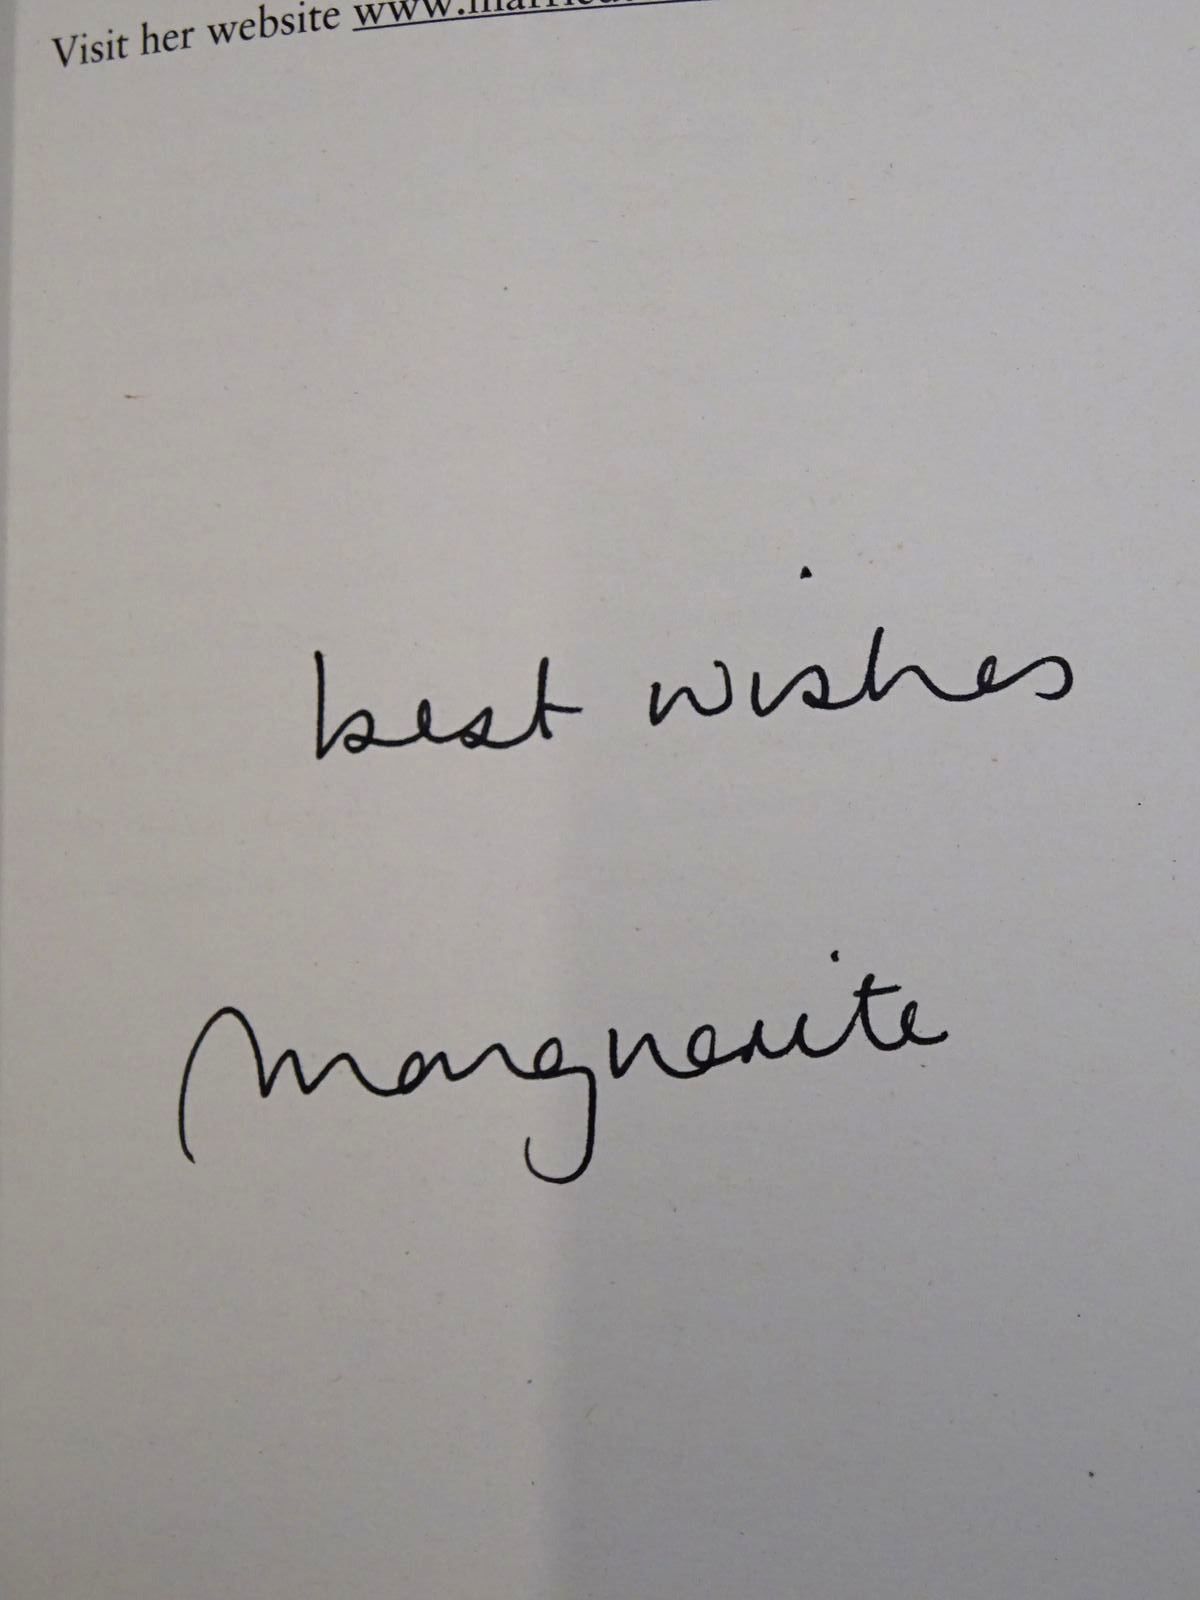 Visit her website
best wishes
Marguerite